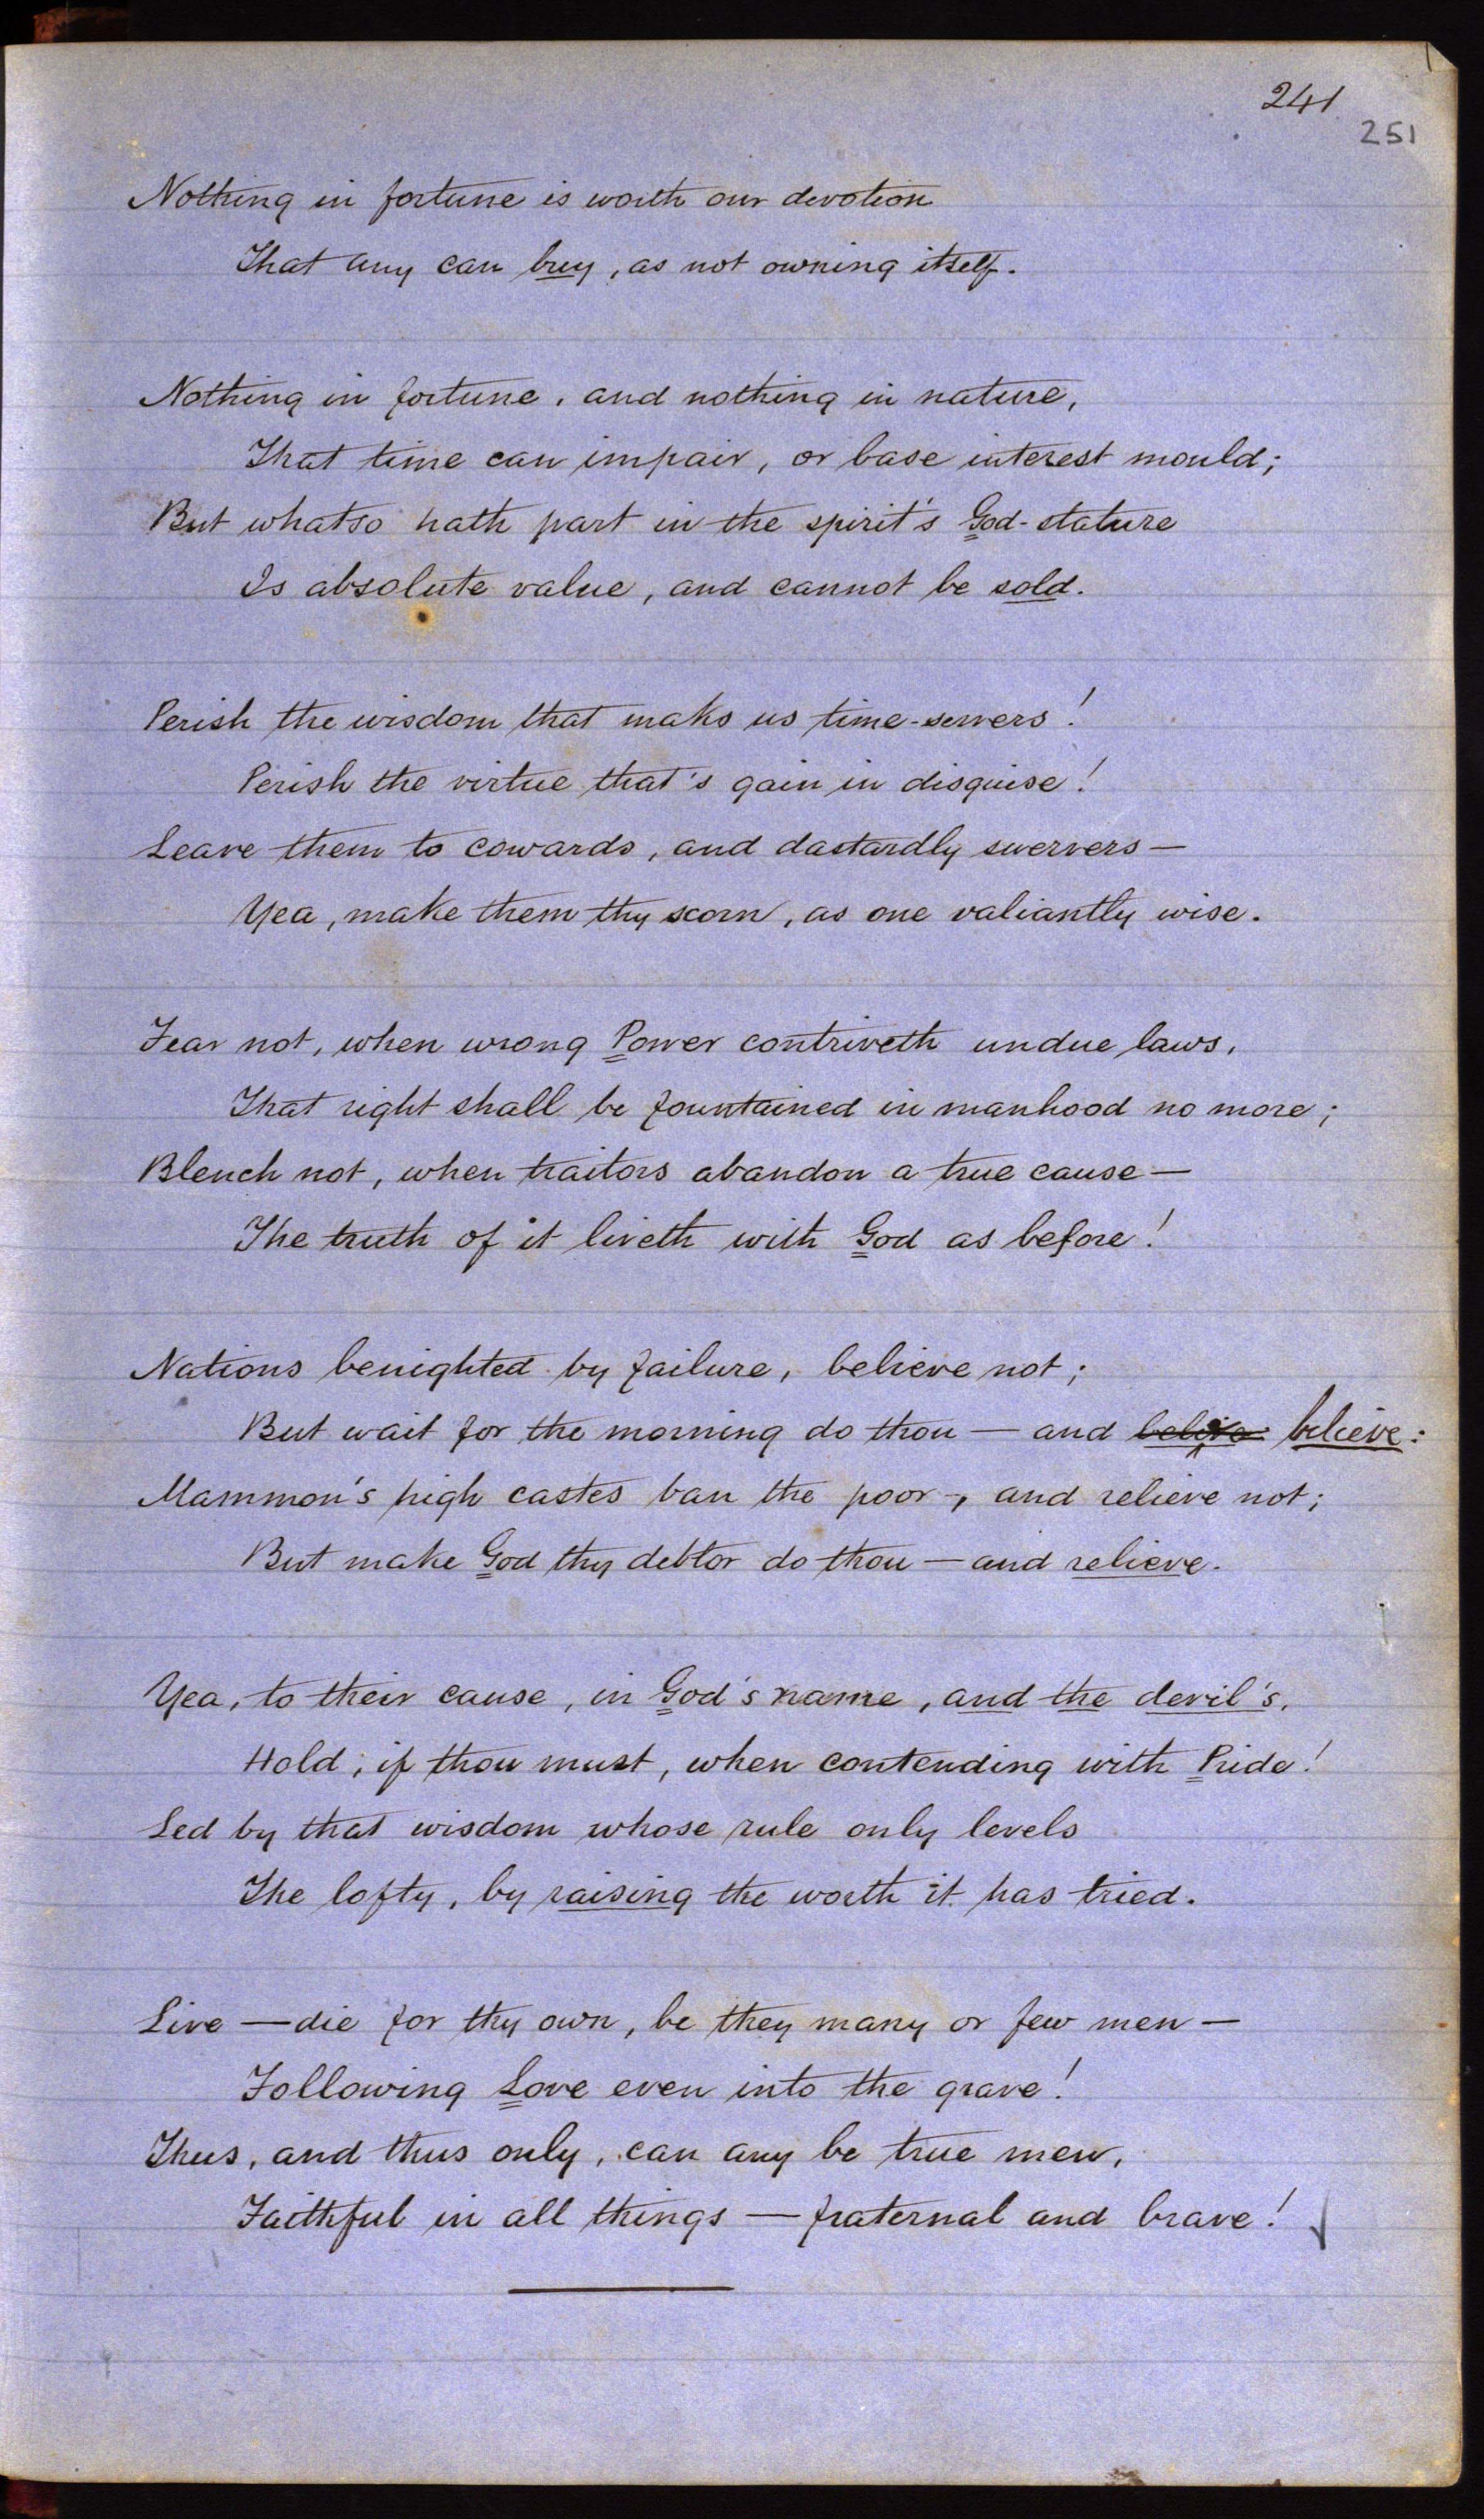 241
251
Nothing in fortune is worth our devotion
That any can buy, as not owning itself.
Nothing in fortune, and nothing in nature,
That time can impair, or base interest mould;
But whatso hath part in the spirit's God-stature
Is absolute value, and cannot be sold.
Perish the wisdom that maks us time-servers!
Perish the virtue that's gain in disguise!
Leave them to cowards, and dastardly swervers—
Yea, make them thy scorn, as one valiantly wise.
Fear not, when wrong Power contriveth undue laws,
That right shall be fountained in manhood no more;
Blench not, when traitors abandon a true cause—
The truth of it liveth with God as before!
Nations benighted by failure, believe not;
But wait for the morning do thou — and believe: believe:
Mammon's high castes ban the poor, and relieve not;
But make God thy debtor do thou — and relieve.
Yea, to their cause, in God's name, and the devil's,
Hold, if thou must, when contending with Pride!
Led by that wisdom whose rule only levels
The lofty, by raising the worth it has tried.
Live — die for thy own, be they many or few men—
Following Love even into the grave!
Thus, and thus only, can any be true men,
Faithful in all things — fraternal and brave!